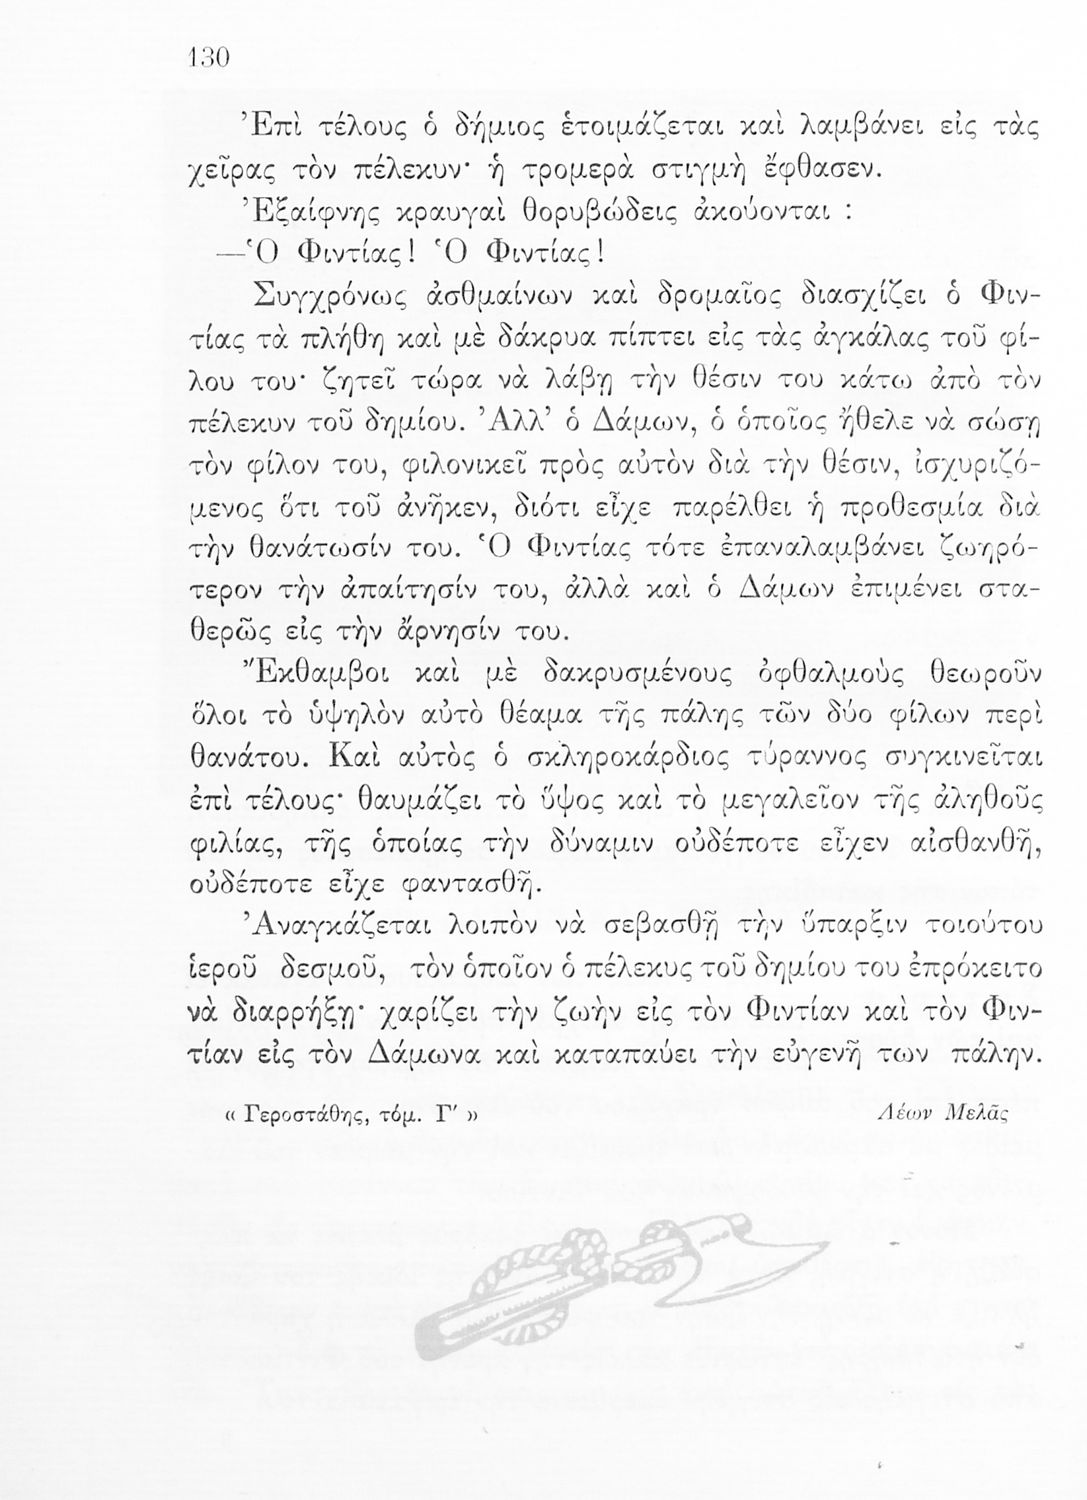 130
Ἐπὶ τέλους ὁ δήμιος ἑτοιμάζεται καὶ λαμβάνει εἰς τὰς
χεῖρας τὸν πέλεκυν· ἡ τρομερὰ στιγμὴ ἔφθασεν.
Ἐξαίφνης κραυγαὶ θορυβώδεις ἀκούονται :
—Ὁ Φιντίας! Ὁ Φιντίας!
Συγχρόνως ἀσθμαίνων καὶ δρομαῖος διασχίζει ὁ Φιν-
τίας τὰ πλήθη καὶ μὲ δάκρυα πίπτει εἰς τὰς ἀγκάλας τοῦ φί-
λου του· ζητεῖ τώρα νὰ λάβῃ τὴν θέσιν του κάτω ἀπὸ τὸν
πέλεκυν τοῦ δημίου. Ἀλλ’ ὁ Δάμων, ὁ ὁποῖος ἤθελε νὰ σώσῃ
τὸν φίλον του, φιλονικεῖ πρὸς αὐτὸν διὰ τὴν θέσιν, ἰσχυριζό-
μενος ὅτι τοῦ ἀνῆκεν, διότι εἶχε παρέλθει ἡ προθεσμία διὰ
τὴν θανάτωσίν του. Ὁ Φιντίας τότε ἐπαναλαμβάνει ζωηρό-
τερον τὴν ἀπαίτησίν του, ἀλλὰ καὶ ὁ Δάμων ἐπιμένει στα-
θερῶς εἰς τὴν ἄρνησίν του.
Ἔκθαμβοι καὶ μὲ δακρυσμένους ὀφθαλμοὺς θεωροῦν
ὅλοι τὸ ὑψηλὸν αὐτὸ θέαμα τῆς πάλης τῶν δύο φίλων περὶ
θανάτου. Καὶ αὐτὸς ὁ σκληροκάρδιος τύραννος συγκινεῖται
ἐπὶ τέλους· θαυμάζει τὸ ὕψος καὶ τὸ μεγαλεῖον τῆς ἀληθοῦς
φιλίας, τῆς ὁποίας τὴν δύναμιν οὐδέποτε εἶχεν αἰσθανθῆ,
οὐδέποτε εἶχε φαντασθῆ.
Ἀναγκάζεται λοιπὸν νὰ σεβασθῇ τὴν ὕπαρξιν τοιούτου
ἱεροῦ δεσμοῦ, τὸν ὁποῖον ὁ πέλεκυς τοῦ δημίου του ἐπρόκειτο
νὰ διαρρήξῃ· χαρίζει τὴν ζωὴν εἰς τὸν Φιντίαν καὶ τὸν Φιν-
τίαν εἰς τὸν Δάμωνα καὶ καταπαύει τὴν εὐγενῆ των πάλην.
« Γεροστάθης, τόμ. Γ′ » Λέων Μελᾶς